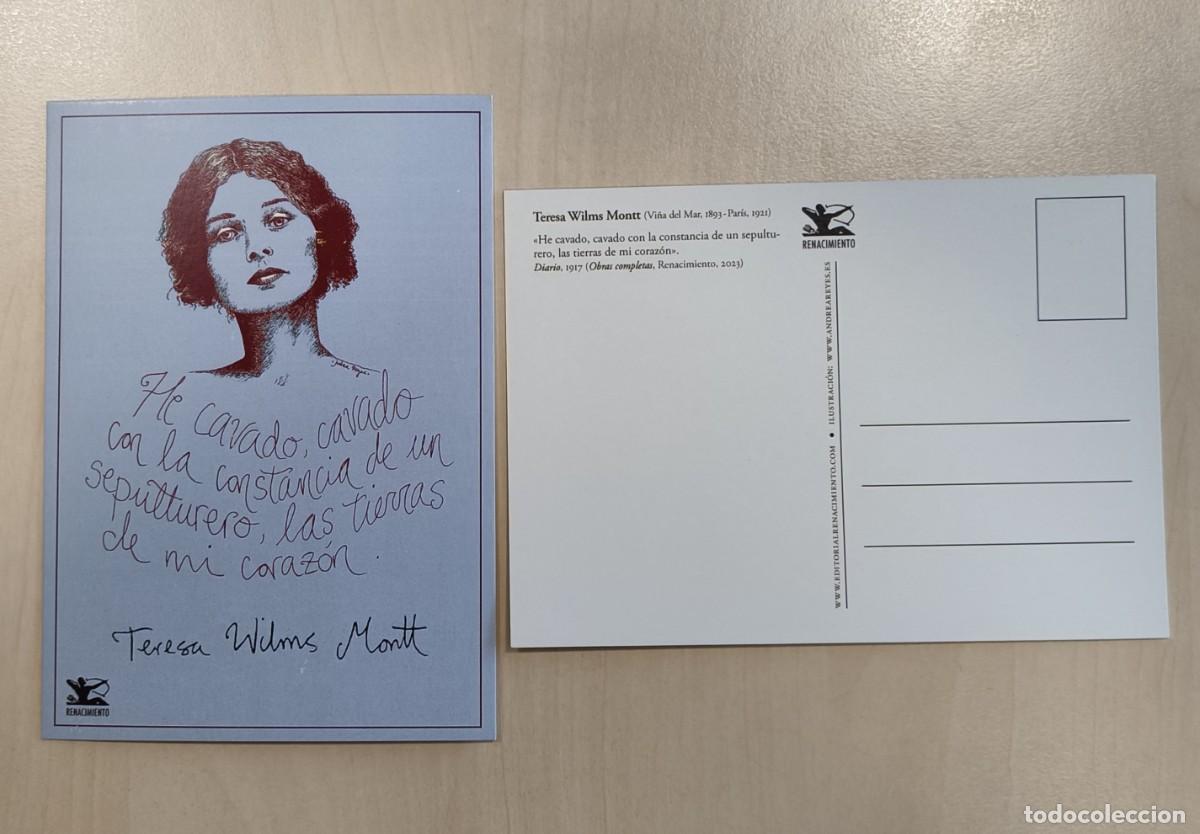 He cavado, cavado
con la constancia de un
sepulturero, las tierras
de mi corazón.
Teresa Wilms Montt
RENACIMIENTO
Teresa Wilms Montt (Viña del Mar, 1893-París, 1921)
«He cavado, cavado con la constancia de un sepultu-
rero, las tierras de mi corazón».
Diario, 1917 (Obras completas, Renacimiento, 2023)
RENACIMIENTO
WWW.EDITORIALRENACIMIENTO.COM • ILUSTRACIÓN: WWW.ANDREAREYES.ES
todocoleccion